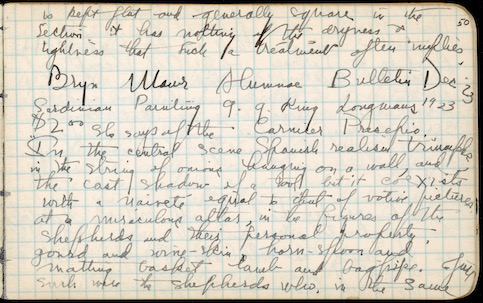 50
is kept flat and generally square in the
section it has nothing of the dryness or
tightness that such a treatment often implies.
Bryn Mawr Alumnae Bulletin Dec. '23
Sardinian Painting G. G. King Longmans 1923
$2.00 She says of the Carnicer Presepio.
In the central scene Spanish realism triumphs
in the string of onions hanging on a wall, and
the cast shadow of a but it coexists
with a naiveté equal to that of votive pictures
at a miraculous altar, in the figures of the
shepherds and their personal property,
gourd and wine-skin, horn-spoon and
matting basket, lamb and bagpipe.
such were the shepherds who, in the same